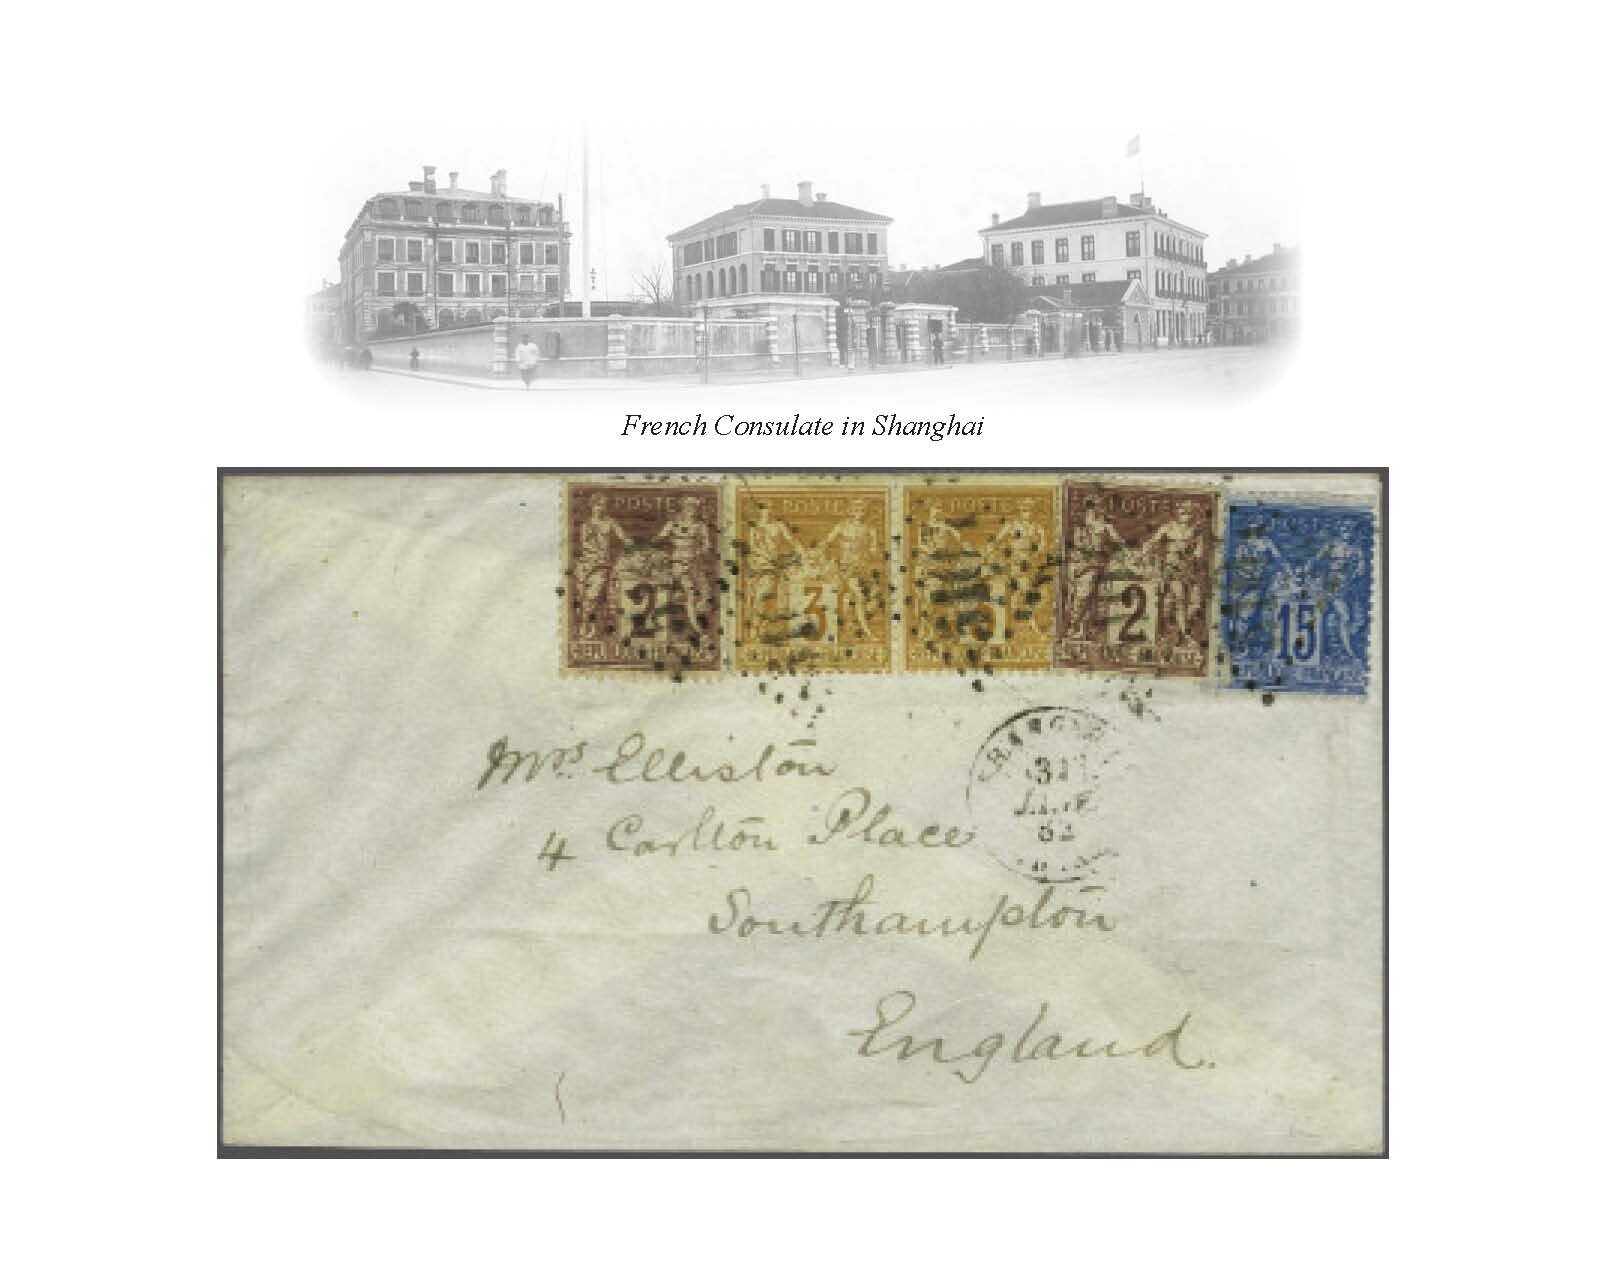 French Consulate in Shanghai
POSTE POSTE POSTE POSTE POSTE
2 3 3 2 15
Mrs. Elliston
4 Carlton Place
Southampton
England.
82